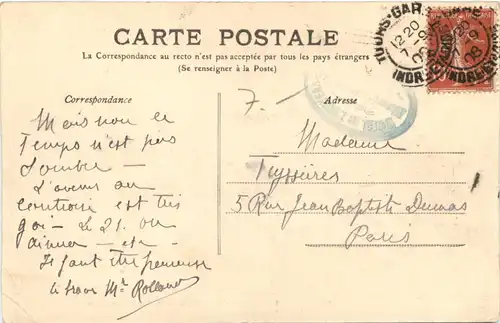 CARTE POSTALE
La Correspondance au recto n'est pas acceptée par tous les pays étrangers
(Se renseigner à la Poste)
TOURS-GARE
12-20
7-9
INDRE-ET-
Correspondance
7.-
Adresse
Mais non le
temps n'est pas
sombre -
L'avenir au
contraire est très
gai - Le 21. on
dinner -
Il faut être
le brave Mr Rolland
Madame
Teyssières
5 Rue Jean Baptiste Dumas
Paris